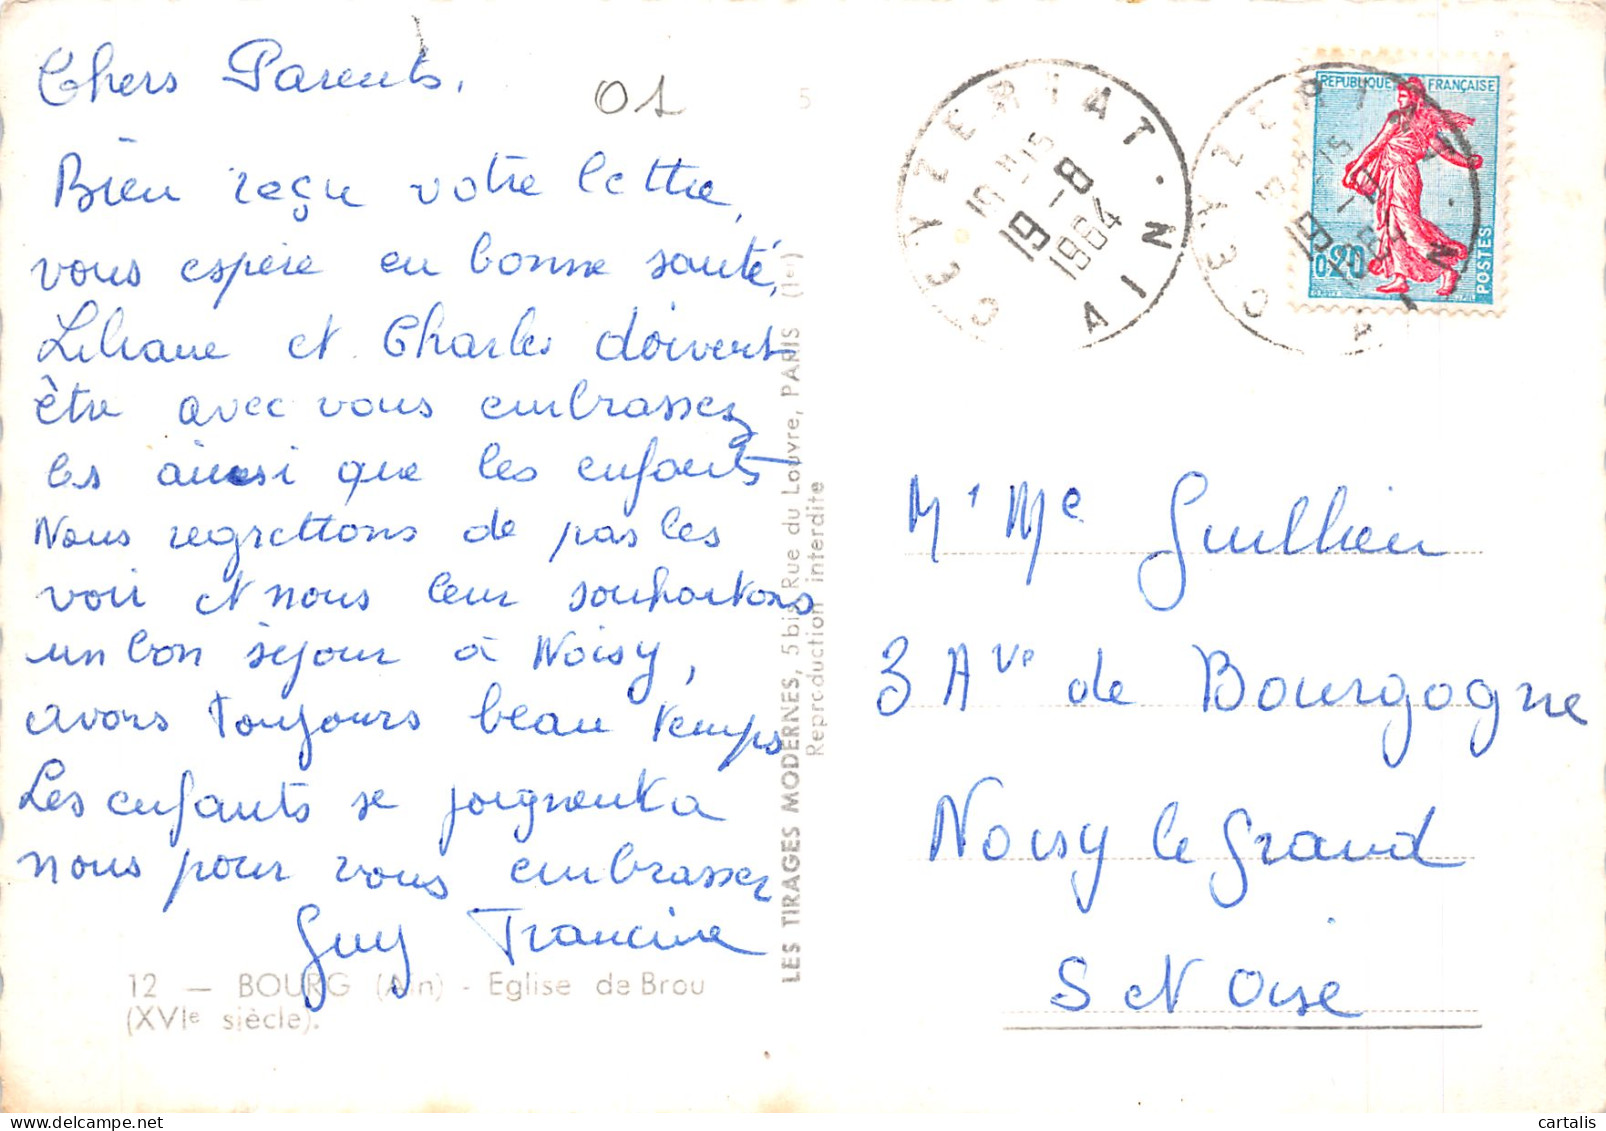 Chers Parents.
01
5
Bien reçu votre lettre,
vous espère en bonne santé,
Liliane et Charles doivent
être avec vous embrassez
les ainsi que les enfants
Nous regrettons de pas les
voir et nous leur souhaitons
un bon séjour à Noisy,
avons toujours beau temps
Les enfants se joignent à
nous pour vous embrasser
Guy Francine
12 — BOURG (Ain) - Eglise de Brou
(XVIe siècle).
LES TIRAGES MODERNES, 5 bis Rue du Louvre, PARIS (1er)
Reproduction interdite
CEYZERIAT · AIN
19 H 15
19 -8
1964
CEYZERIAT · AIN
19 H 15
19 -8
1964
REPUBLIQUE FRANÇAISE
0,20
POSTES
Mr Me Guillien
3 Ave de Bourgogne
Noisy le Grand
S et Oise
cartalis